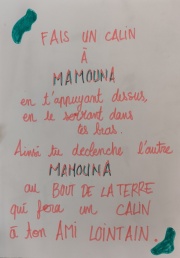 FAIS UN CALIN
À
MAMOUNA
en t'appuyant dessus,
en le serrant dans
les bras.
Ainsi tu declenche l'autre
MAMOUNA
au BOUT DE LA TERRE
qui fera un CALIN
à ton AMI LOINTAIN.